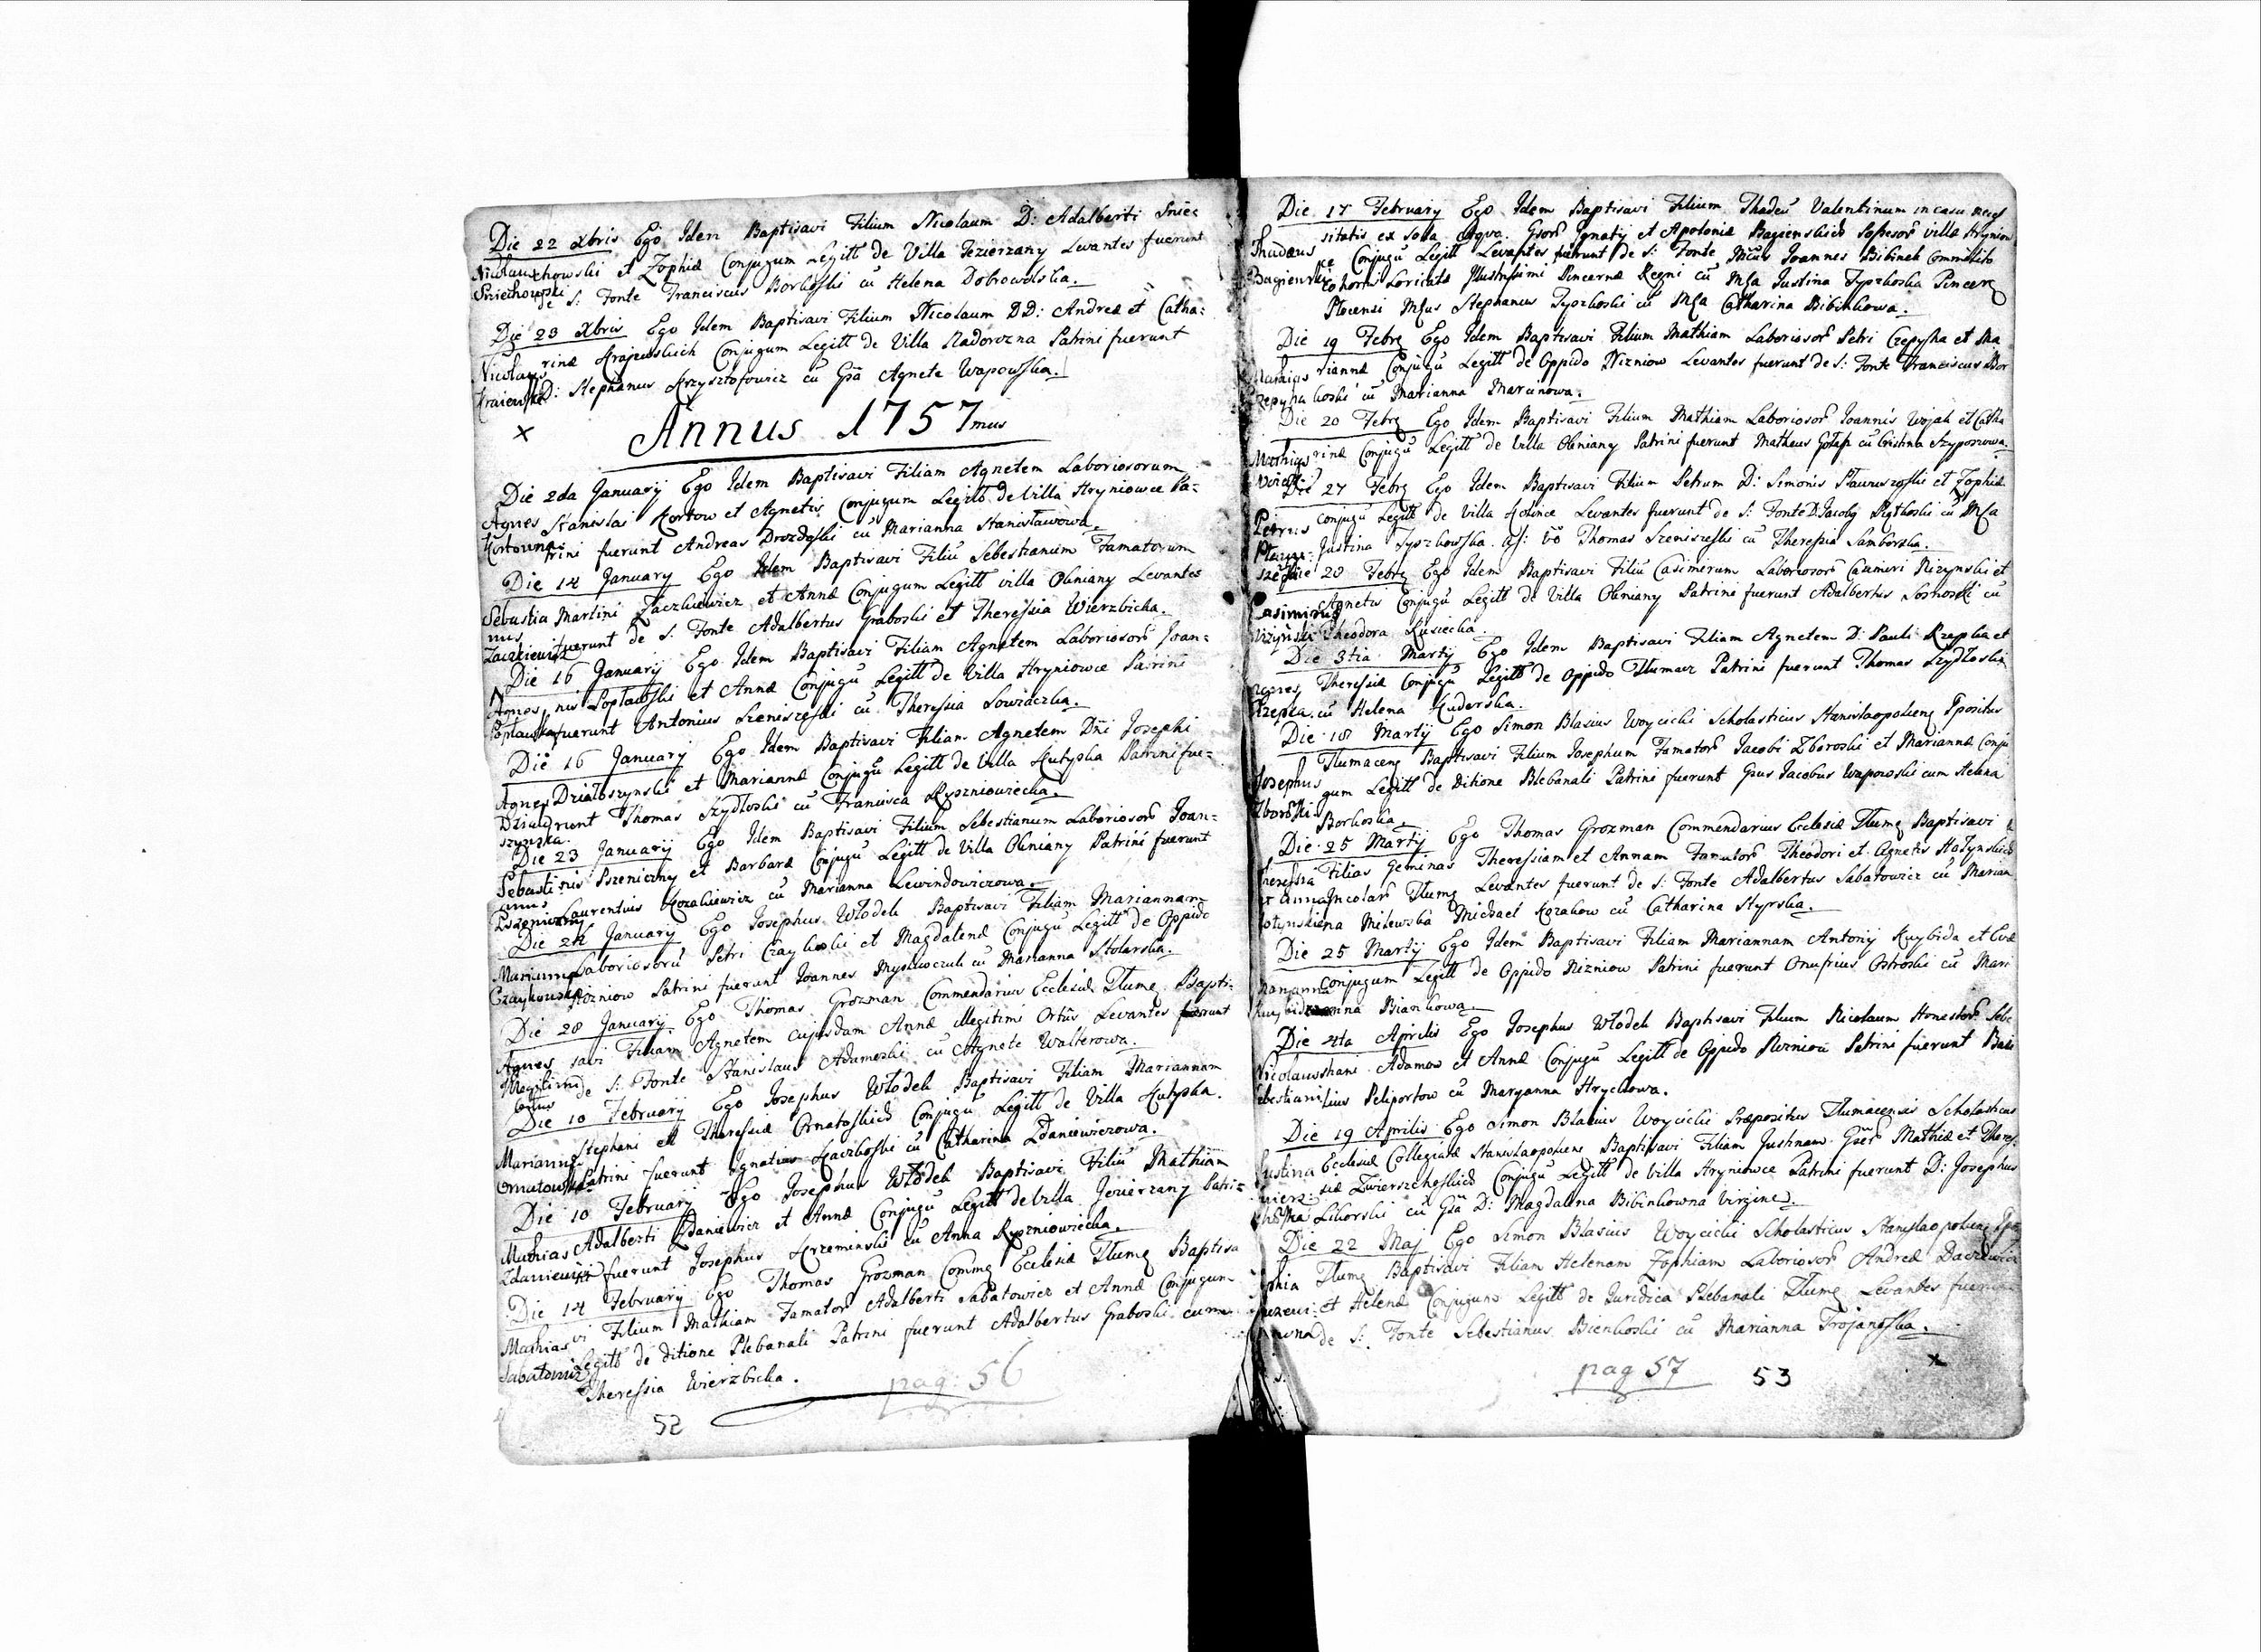 Die 22 Xbris Ego Idem Baptisavi Filium Nicolaum D: Adalberti Sniec
Nicolaus chowski et Zophiæ Conjugum Legitt de Villa Jezierzany Levantes fuerunt
Sniechowski de S: Fonte Franciscus Borkoski cu Helena Dobrowolska.
Die 23 Xbris Ego Idem Baptisavi Filium Nicolaum DD: Andreæ et Catha:
Nicolaus rinæ Krajewskich Conjugum Legitt de Villa Nadorozna Patrini fuerunt
D: Stephanus Krzysztofowicz cu Gsa Agnete Wapowska.
x
Annus 1757mus
Die 2da January Ego Idem Baptisavi Filiam Agnetem Laboriosorum
Agnes Stanislai Kortow et Agnetis Conjugum Legitt de Villa Hryniowce Pa-
Kortowna trini fuerunt Andreas Drozdoski cu Marianna Stanisławowa.
Die 14 January Ego Idem Baptisavi Filiū Sebestianum Famatorum
Sebastia Martini Zaczkiewicz et Annæ Conjugum Legitt villa Okniany Levantes
nus
Zaczkiewicz fuerunt de S: Fonte Adalbertus Graboski et Theressia Wierzbicka.
Die 16 January Ego Idem Baptisavi Filiam Agnetem Laboriosor Joan:
Agnes nis Poplawski et Annæ Conjugū Legitt de Villa Hryniowce Patrini
fuerunt Antonius Szeniszeski cu Theressia Sowiaczka.
Die 16 January Ego Idem Baptisavi Filiam Agnetem Dni Josephi
Agnes Działoszynski et Mariannæ Conjugū Legitt de Villa Kutyska Patrini fue-
runt Thomas Szydłoski cū Francisca Ryszniowiecka.
szynzka.
Die 23 January Ego Idem Baptisavi Filium Sebestianum Laboriosor Joan-
Sebasti nis Pszeniczny et Barbaræ Conjugū Legitt de Villa Okniany Patrini fuerunt
anus
Pszeniczny Laurentius Kozakiewicz cū Marianna Lewindowiczowa.
Die 24 January Ego Josephus Włodek Baptisavi Filiam Mariannam
Marianna Laboriosorū Petri Czaykoski et Magdalenæ Conjugū Legitt de Oppido
Czaykowska Nizniow Patrini fuerunt Joannes Myskiwczuk cu Marianna Stolarska.
Die 28 January Ego Thomas Grozman Commendarius Ecclesiæ Tlume Bapti-
Agnes savi Filiam Agnetem cujusdam Annæ illegitimi Ortūs Levantes fuerunt
Illegitimi de S: Fonte Stanislaus Adamoski cu Agnete Walterowa.
Ortus
Die 10 February Ego Josephus Włodek Baptisavi Filiam Mariannam
Marianna Stephani et Theressiæ Ornatoskich Conjugū Legitt de Villa Kutyska.
Ornatowska Patrini fuerunt Ignatius Kaczkoski cū Catharina Zdaniewiczowa.
Die 10 February Ego Josephus Włodek Baptisavi Filiū Mathiam
Mathias Adalberti Zdaniewicz et Annæ Conjugū Legitt de Villa Jezierzany Patri-
Zdaniewicz ni fuerunt Josephus Krzeminski cu Anna Ryszniowiecka.
Die 14 February Ego Thomas Grozman Comme Ecclesiæ Tlume Baptisa
Mathias vi Filium Mathiam Famator Adalberti Sabatowicz et Annæ Conjugum
Sabatowicz Legitt de ditione Plebanali Patrini fuerunt Adalbertus Graboski cum
Theressia Wierzbicka.
pag: 56
52
Die 17 February Ego Idem Baptisavi Filium Thadeū Valentinum in casu neces
Thadeus sitatis ex sola Aqva. Gsor Ignatij et Apoloniæ Bagienskich Posesor villæ Hryniow
ce Conjugū Legitt Levantes fuerunt de S: Fonte Joannes Bibinek Commilito
Bagienski Cohortis Loricatæ Illustrissimi Pincernæ Regni cū Justina Tyszkoska Pincern
Plocensi Stephanus Tyszkoski cū Catharina Bibinkowa.
Die 19 Febr Ego Idem Baptisavi Filium Mathiam Laboriosor Petri Czepyha et Ma
Mathias riannæ Conjugū Legitt de Oppido Nizniow Levantes fuerunt de S: Fonte Franciscus Bor
Czepyha koski cū Marianna Marcinowa.
Die 20 Febr Ego Idem Baptisavi Filium Mathiam Laboriosor Joannis Wojak et Catha
Mathias rinæ Conjugū Legitt de Villa Okniany Patrini fuerunt Matheus Gołap cū Cristina Szyposzowa.
Die 27 Febr Ego Idem Baptisavi Filium Petrum D: Simonis et Zophiæ
Petrus conjugū Legitt de Villa Kolince Levantes fuerunt de S: Fonte D: Jacoby Rytkoski cū
Justina Tyszkowska. Thomas Szeniszeski cū Theressia Samborska.
Die 28 Febr Ego Idem Baptisavi Filiū Casimirum Laboriosor Casimiri Nizynski et
Casimirus Agnetis Conjugū Legitt de Villa Okniany Patrini fuerunt Adalbertus Sosnoski cū
Nizynski Theodora Lusiecka.
Die 3tia Marty Ego Idem Baptisavi Filiam Agnetem D: Pauli Rzepka et
Agnes Theressiæ Conjugū Legitt de Oppido Tlumacz Patrini fuerunt Thomas Szydłoski
Rzepka. cū Helena Kuderska.
Die 18 Marty Ego Simon Blasius Woycicki Scholasticus Stanislaopoliens Ppositus
Tlumacens Baptisavi Filium Josephum Famator Jacobi Zboroski et Mariannæ Conju
Josephus gum Legitt de Ditione Plebanali Patrini fuerunt Gsus Jacobus Wapososki cum Helena
Zboroski Borkoska.
Die 25 Marty Ego Thomas Grozman Commendarius Ecclesiæ Tlume Baptisavi
Theressia Filias Geminas Theressiam et Annam Famator Theodori et Agnetis Hatynskich
et Anna Incolar Tlume Levantes fuerunt de S: Fonte Adalbertus Sabatowicz cū Marian
na Milewska Michael Kozakow cū Catharina Styrska.
Die 25 Marty Ego Idem Baptisavi Filiam Mariannam Antonij Kuybida et Evæ
Marianna Conjugum Legitt de Oppido Nizniow Patrini fuerunt Onufrius Ostroski cū Mari
anna Biankowa.
Die 4ta Aprilis Ego Josephus Włodek Baptisavi Filium Nicolaum Honestor Sebe
Nicolaus stiani Adamow et Annæ Conjugū Legitt de Oppido Nizniow Patrini fuerunt Basi
lius Peliportow cū Maryanna Hryckowa.
Die 19 Aprilis Ego Simon Blasius Woycicki Præpositus Tlumacensis Scholasticus
Justina Ecclesiæ Collegiatæ Stanislaopoliens Baptisavi Filiam Justinam Gser Mathiæ et Theres
siæ Zwierszchoskich Conjugū Legitt de Villa Hryniowce Patrini fuerunt D: Josephus
Likorski cū Gsa D: Magdalena Bibinkowna Virgine.
Die 22 Maj Ego Simon Blasius Woycicki Scholasticus Stanislaopoliens Ppo
Tlume Baptisavi Filiam Helenam Zophiam Laboriosor Andreæ
et Helenæ Conjugum Legitt de Juridica Plebanali Tlume Levantes fuerunt
de S: Fonte Sebestianus Bienkoski cū Marianna Trojanoska.
x
pag 57
53